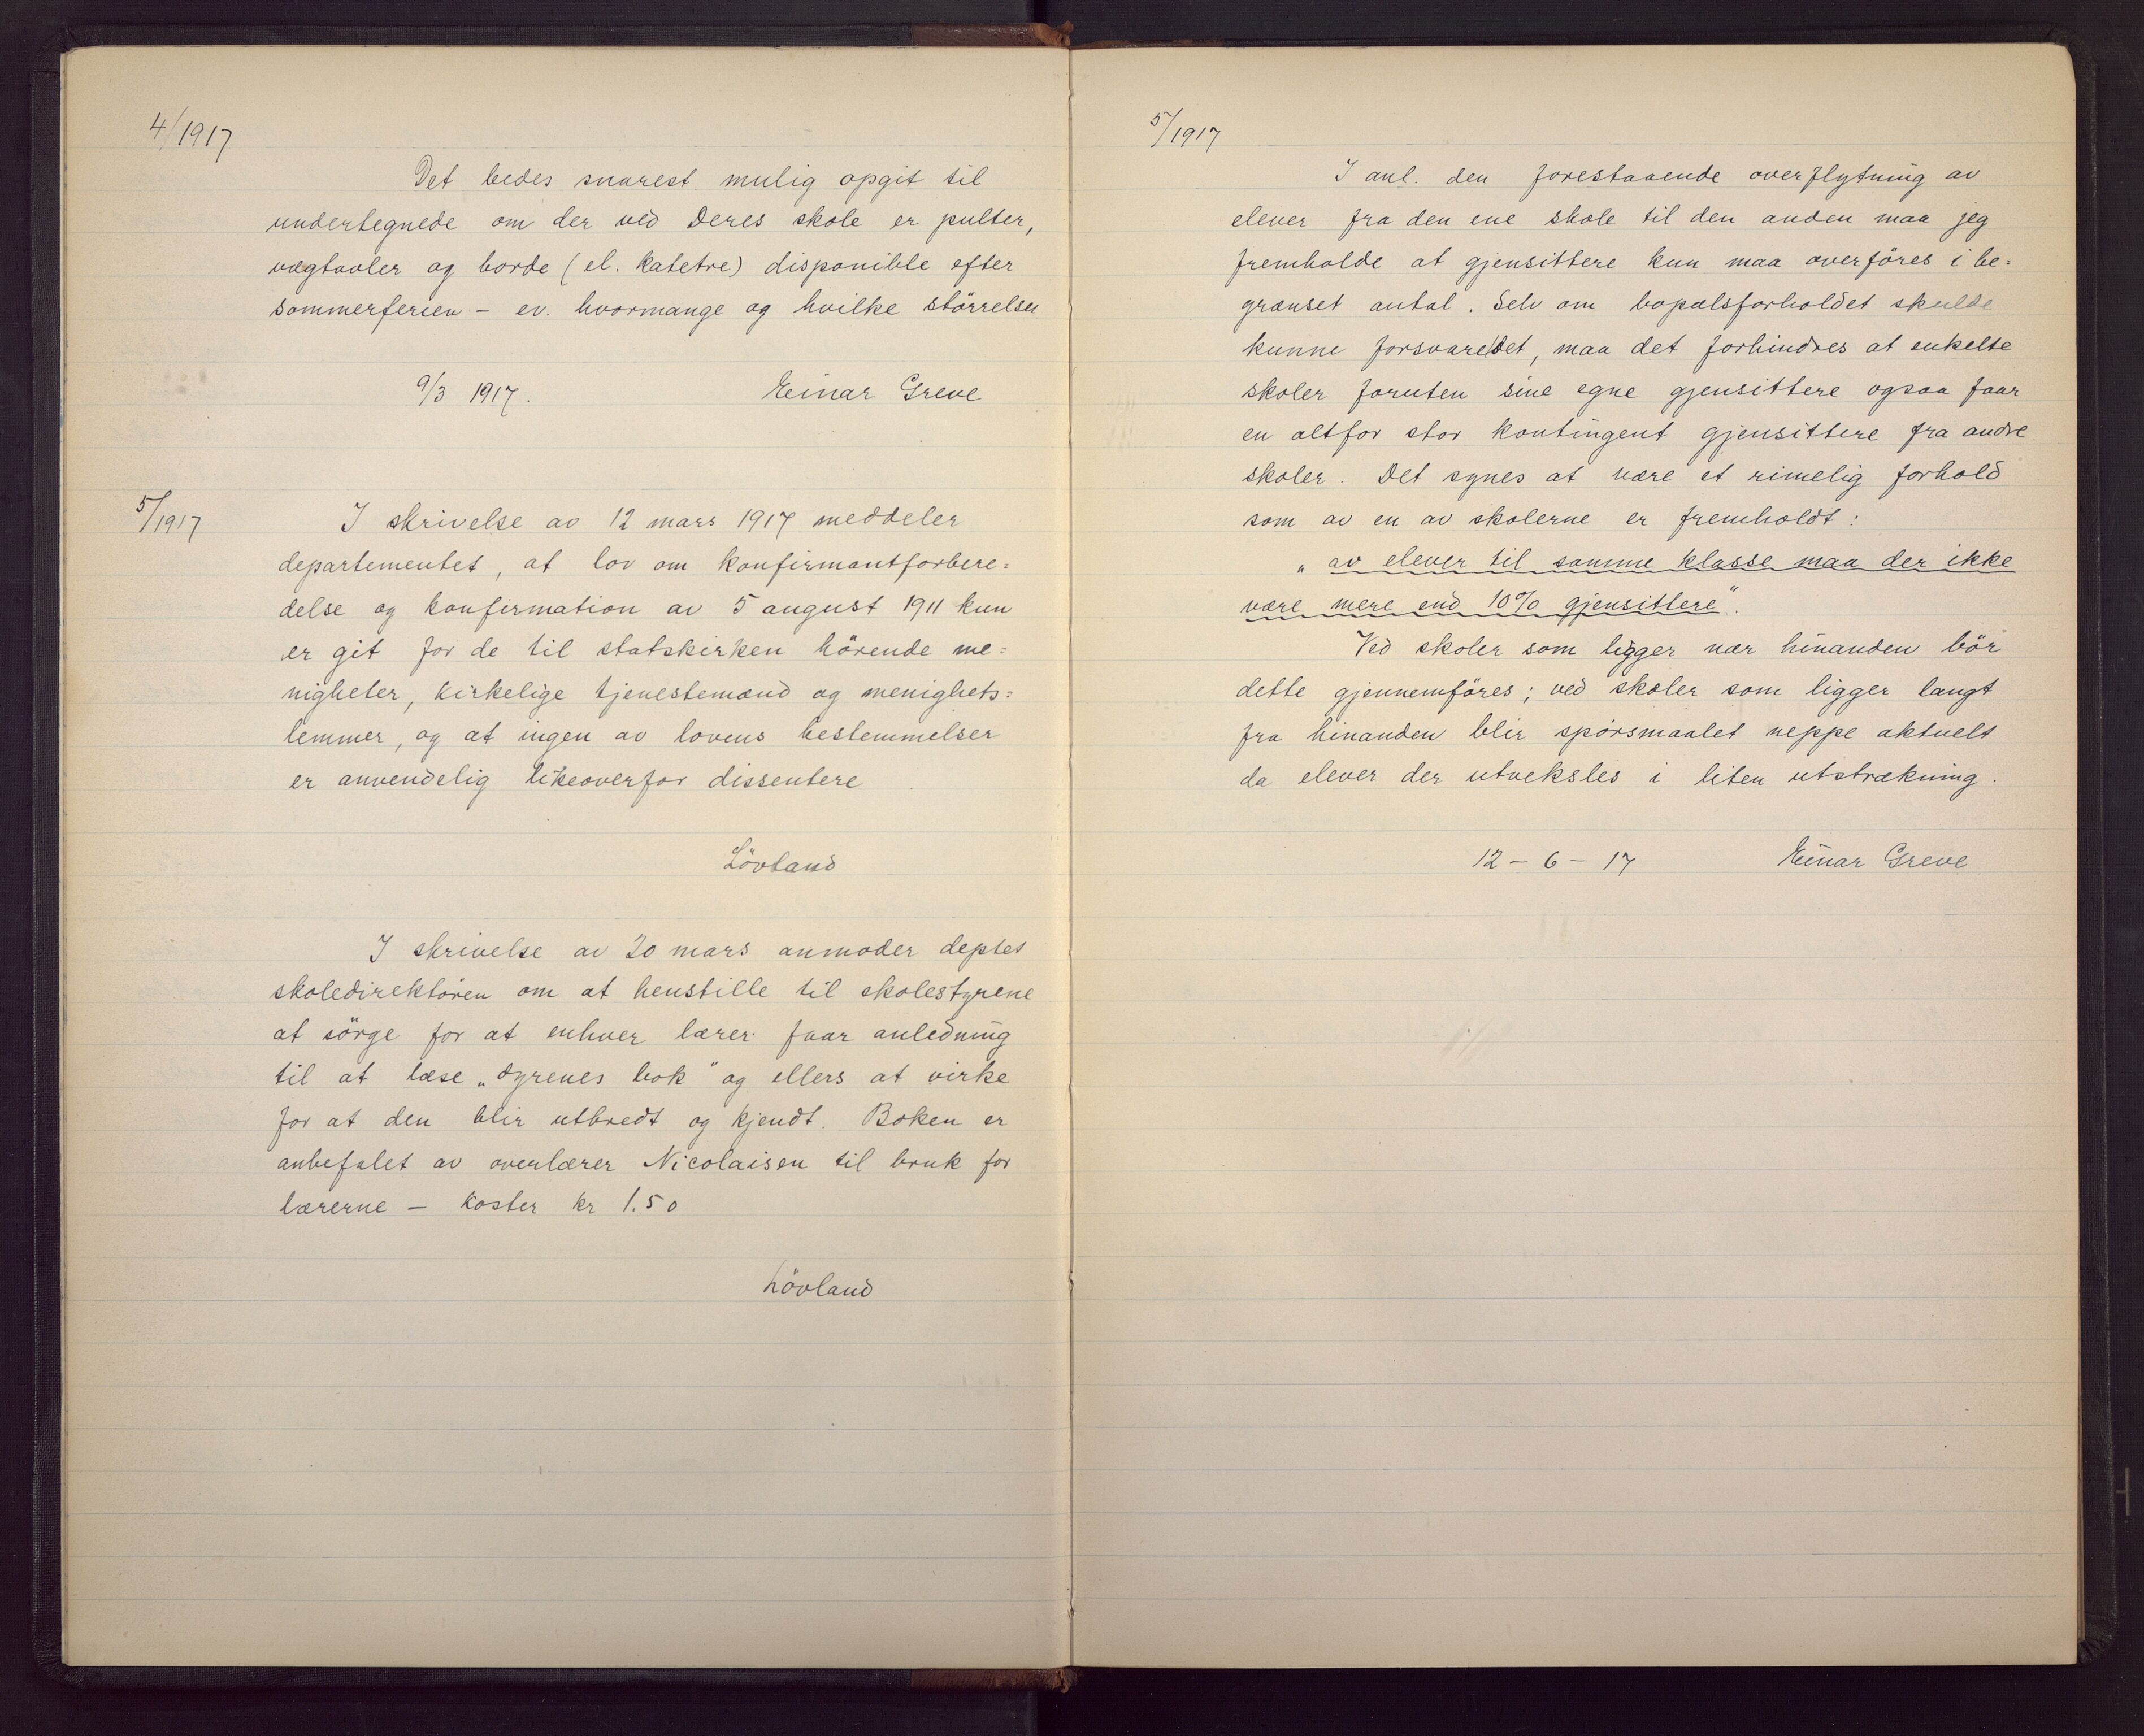 4/1917
Det bedes snarest mulig opgit til
undertegnede om der ved Deres skole er pulter,
vægtavler og borde (el. katetre) disponible efter
sommerferien - ev. hvormange og hvilke störrelser
9/3 1917. Einar Greve
5/1917
I skrivelse av 12 mars 1917 meddeler
departementet, at lov om konfirmantforbere=
delse og konfirmation av 5 august 1911 kun
er git for de til statskirken hörende me=
nigheter, kirkelige tjenestemænd og menighets=
lemmer, og at ingen av lovens bestemmelser
er anvendelig likeoverfor dissentere
Lövland
I skrivelse av 20 mars anmoder deptet
skoledirektören om at henstille til skolestyrene
at sörge for at enhver lærer faar anledning
til at læse „dyrenes bok" og ellers at virke
for at den blir utbredt og kjendt. Boken er
anbefalet av overlærer Nicolaisen til bruk for
lærerne - koster kr 1.50
Lövland
5/1917
I anl. den forestaaende overflytning av
elever fra den ene skole til den anden maa jeg
fremholde at gjensittere kun maa overföres i be=
grænset antal. Selv om bopælsforholdet skulde
kunne forsvare det, maa det forhindres at enkelte
skoler foruten sine egne gjensittere ogsaa faar
en altfor stor kontingent gjensittere fra andre
skoler. Det synes at være et rimelig forhold
som av en av skolerne er fremholdt:
„av elever til samme klasse maa der ikke
være mere end 10% gjensittere".
Ved skoler som ligger nær hinanden bör
dette gjennemföres; ved skoler som ligger langt
fra hinanden blir spörsmaalet neppe aktuelt
da elever der utveksles i liten utstrækning.
12 - 6 - 17 Einar Greve